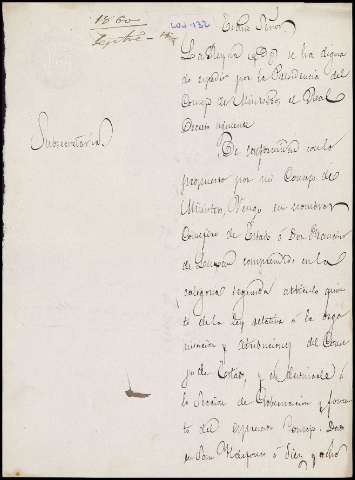 1860
Septre - 18
Subsecretaria
Excmo Señor
La Reyna (q.D.g.) se ha dignado
de espedir por la Presidencia del
Consejo de Ministros, el Real
Decreto siguiente
De conformidad con lo
propuesto por mi Consejo de
Ministros, Vengo en nombrar
Consejero de Estado á Don Francisco
de comprendido en la
categoria segunda articulo quin
to de la ley relativa á la orga
nizacion y atribuciones del Conse
jo de Estado, y en destinarle á
la Seccion de Gobernacion y Fomen
to del espresado Consejo. Dado
en San Ildefonso á diez y ocho